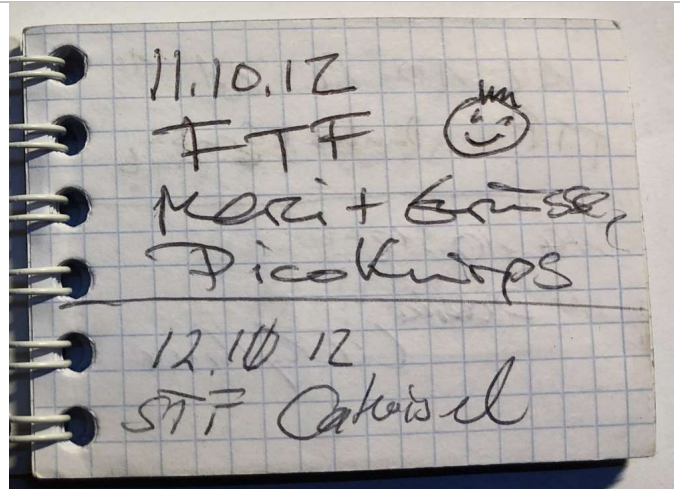 11.10.12
FTF
Merci + Grüsse,
PicoKnirps
12.10 12
STF